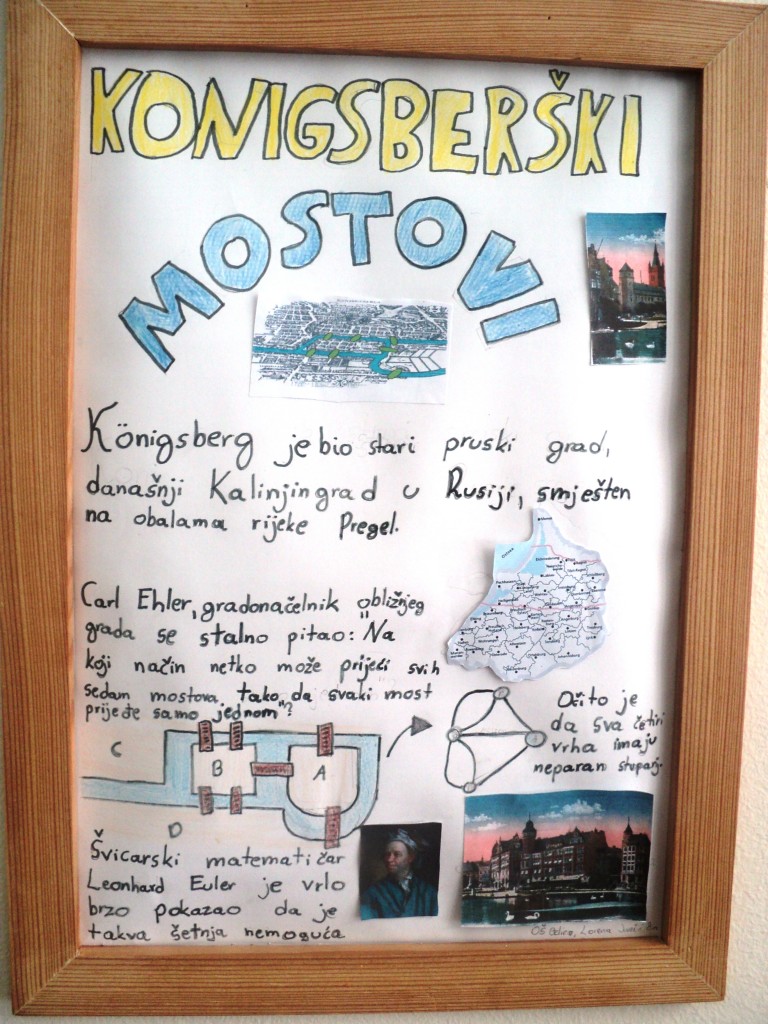 KONIGSBERŠKI
MOSTOVI
Königsberg je bio stari pruski grad,
današnji Kalinjingrad u Rusiji, smješten
na obalama rijeke Pregel.
Carl Ehler, gradonačelnik obližnjeg
grada se stalno pitao: "Na
koji način netko može prijeći svih
sedam mostova, tako da svaki most
prijeđe samo jednom"?
Očito je
da sva četiri
vrha imaju
neparan stupanj.
C
B
A
D
Švicarski matematičar
Leonhard Euler je vrlo
brzo pokazao da je
takva šetnja nemoguća
OŠ Lorena